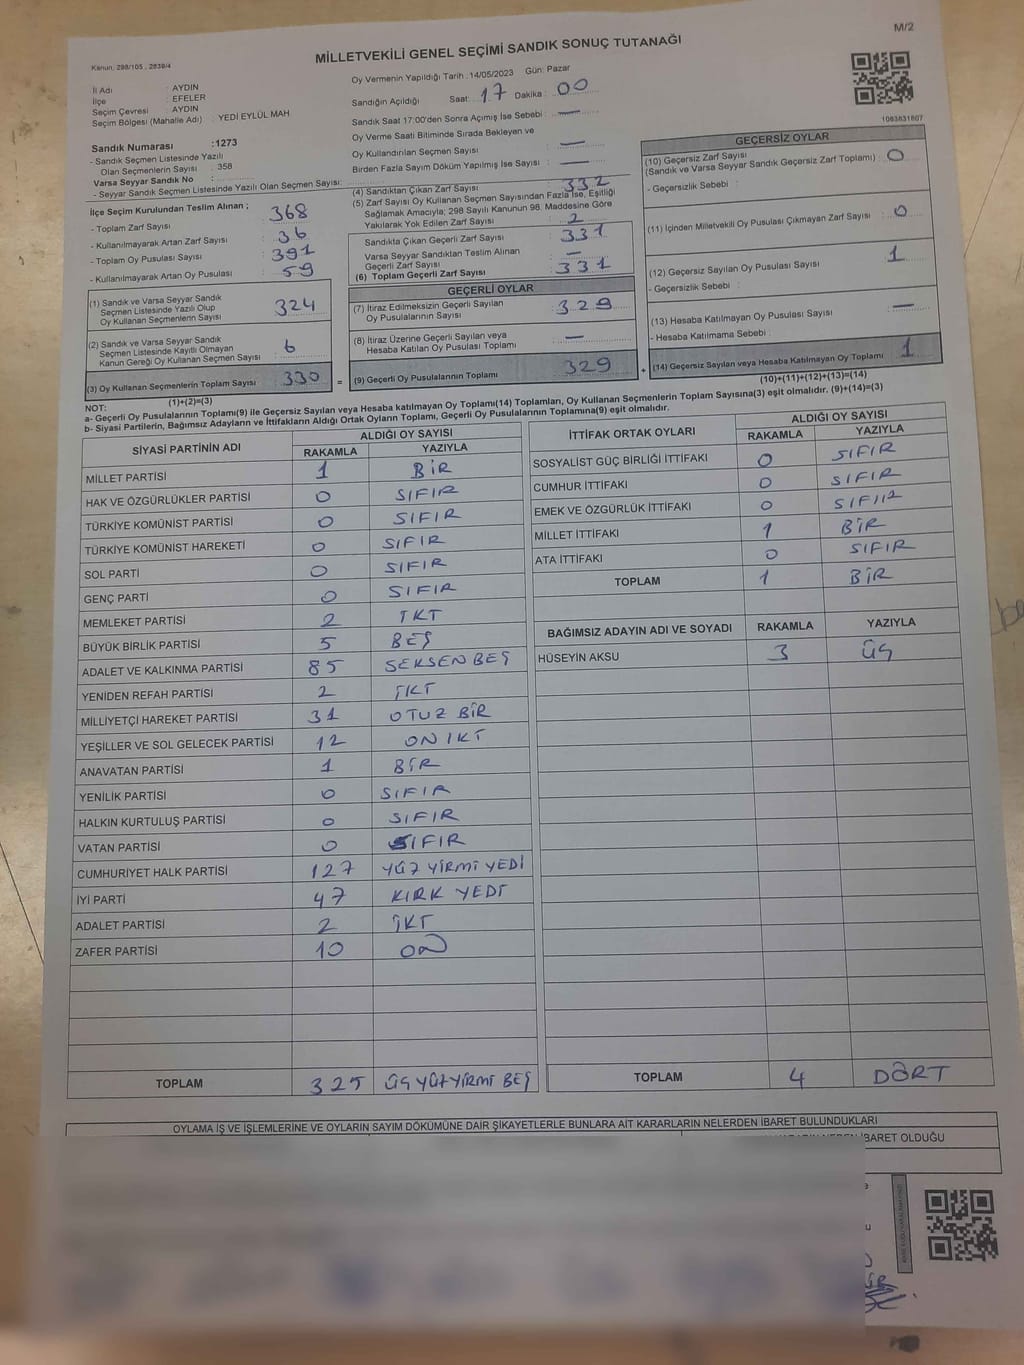 M/2
MİLLETVEKİLİ GENEL SEÇİMİ SANDIK SONUÇ TUTANAĞI
Kanun, 298/105 , 2839/4
1063631607
İl Adı : AYDIN
İlçe : EFELER
Seçim Çevresi : AYDIN
Seçim Bölgesi (Mahalle Adı) : YEDİ EYLÜL MAH
Sandık Numarası :1273
- Sandık Seçmen Listesinde Yazılı
Olan Seçmenlerin Sayısı : 358
Varsa Seyyar Sandık No :
- Seyyar Sandık Seçmen Listesinde Yazılı Olan Seçmen Sayısı:
Oy Vermenin Yapıldığı Tarih :14/05/2023 Gün: Pazar
Sandığın Açıldığı Saat: 17 Dakika: 00
Sandık Saat 17:00'den Sonra Açımış İse Sebebi : —
Oy Verme Saati Bitiminde Sırada Bekleyen ve
Oy Kullandırılan Seçmen Sayısı : —
Birden Fazla Sayım Döküm Yapılmış İse Sayısı : —
İlçe Seçim Kurulundan Teslim Alınan ;
- Toplam Zarf Sayısı : 368
- Kullanılmayarak Artan Zarf Sayısı : 36
- Toplam Oy Pusulası Sayısı : 391
- Kullanılmayarak Artan Oy Pusulası : 59
(1) Sandık ve Varsa Seyyar Sandık
Seçmen Listesinde Yazılı Olup
Oy Kullanan Seçmenlerin Sayısı : 324
(2) Sandık ve Varsa Seyyar Sandık
Seçmen Listesinde Kayıtlı Olmayan
Kanun Gereği Oy Kullanan Seçmen Sayısı : 6
(3) Oy Kullanan Seçmenlerin Toplam Sayısı : 330
(1)+(2)=(3)
(4) Sandıktan Çıkan Zarf Sayısı : 332
(5) Zarf Sayısı Oy Kullanan Seçmen Sayısından Fazla İse, Eşitliği
Sağlamak Amacıyla; 298 Sayılı Kanunun 98. Maddesine Göre
Yakılarak Yok Edilen Zarf Sayısı : 2
Sandıkta Çıkan Geçerli Zarf Sayısı : 331
Varsa Seyyar Sandıktan Teslim Alınan
Geçerli Zarf Sayısı : —
(6) Toplam Geçerli Zarf Sayısı : 331
GEÇERLİ OYLAR
(7) İtiraz Edilmeksizin Geçerli Sayılan
Oy Pusulalarının Sayısı : 329
(8) İtiraz Üzerine Geçerli Sayılan veya
Hesaba Katılan Oy Pusulası Toplamı : —
= (9) Geçerli Oy Pusulalarının Toplamı : 329
GEÇERSİZ OYLAR
(10) Geçersiz Zarf Sayısı
(Sandık ve Varsa Seyyar Sandık Geçersiz Zarf Toplamı) : 0
- Geçersizlik Sebebi :
(11) İçinden Milletvekili Oy Pusulası Çıkmayan Zarf Sayısı : 0
(12) Geçersiz Sayılan Oy Pusulası Sayısı : 1
- Geçersizlik Sebebi :
(13) Hesaba Katılmayan Oy Pusulası Sayısı : —
- Hesaba Katılmama Sebebi :
+ (14) Geçersiz Sayılan veya Hesaba Katılmayan Oy Toplamı : 1
(10)+(11)+(12)+(13)=(14)
NOT:
a- Geçerli Oy Pusulalarının Toplamı(9) ile Geçersiz Sayılan veya Hesaba katılmayan Oy Toplamı(14) Toplamları, Oy Kullanan Seçmenlerin Toplam Sayısına(3) eşit olmalıdır. (9)+(14)=(3)
b- Siyasi Partilerin, Bağımsız Adayların ve İttifakların Aldığı Ortak Oyların Toplamı, Geçerli Oy Pusulalarının Toplamına(9) eşit olmalıdır.
SİYASİ PARTİNİN ADI ALDIĞI OY SAYISI
RAKAMLA YAZIYLA
MİLLET PARTİSİ 1 BİR
HAK VE ÖZGÜRLÜKLER PARTİSİ 0 SIFIR
TÜRKİYE KOMÜNİST PARTİSİ 0 SIFIR
TÜRKİYE KOMÜNİST HAREKETİ 0 SIFIR
SOL PARTİ 0 SIFIR
GENÇ PARTİ 0 SIFIR
MEMLEKET PARTİSİ 2 İKİ
BÜYÜK BİRLİK PARTİSİ 5 BEŞ
ADALET VE KALKINMA PARTİSİ 85 SEKSEN BEŞ
YENİDEN REFAH PARTİSİ 2 İKİ
MİLLİYETÇİ HAREKET PARTİSİ 31 OTUZ BİR
YEŞİLLER VE SOL GELECEK PARTİSİ 12 ON İKİ
ANAVATAN PARTİSİ 1 BİR
YENİLİK PARTİSİ 0 SIFIR
HALKIN KURTULUŞ PARTİSİ 0 SIFIR
VATAN PARTİSİ 0 SIFIR
CUMHURİYET HALK PARTİSİ 127 YÜZ YİRMİ YEDİ
İYİ PARTİ 47 KIRK YEDİ
ADALET PARTİSİ 2 İKİ
ZAFER PARTİSİ 10 ON
TOPLAM 325 ÜÇ YÜZ YİRMİ BEŞ
İTTİFAK ORTAK OYLARI ALDIĞI OY SAYISI
RAKAMLA YAZIYLA
SOSYALİST GÜÇ BİRLİĞİ İTTİFAKI 0 SIFIR
CUMHUR İTTİFAKI 0 SIFIR
EMEK VE ÖZGÜRLÜK İTTİFAKI 0 SIFIR
MİLLET İTTİFAKI 1 BİR
ATA İTTİFAKI 0 SIFIR
TOPLAM 1 BİR
BAĞIMSIZ ADAYIN ADI VE SOYADI RAKAMLA YAZIYLA
HÜSEYİN AKSU 3 ÜÇ
TOPLAM 4 DÖRT
OYLAMA İŞ VE İŞLEMLERİNE VE OYLARIN SAYIM DÖKÜMÜNE DAİR ŞİKAYETLERLE BUNLARA AİT KARARLARIN NELERDEN İBARET BULUNDUKLARI
İBARET OLDUĞU